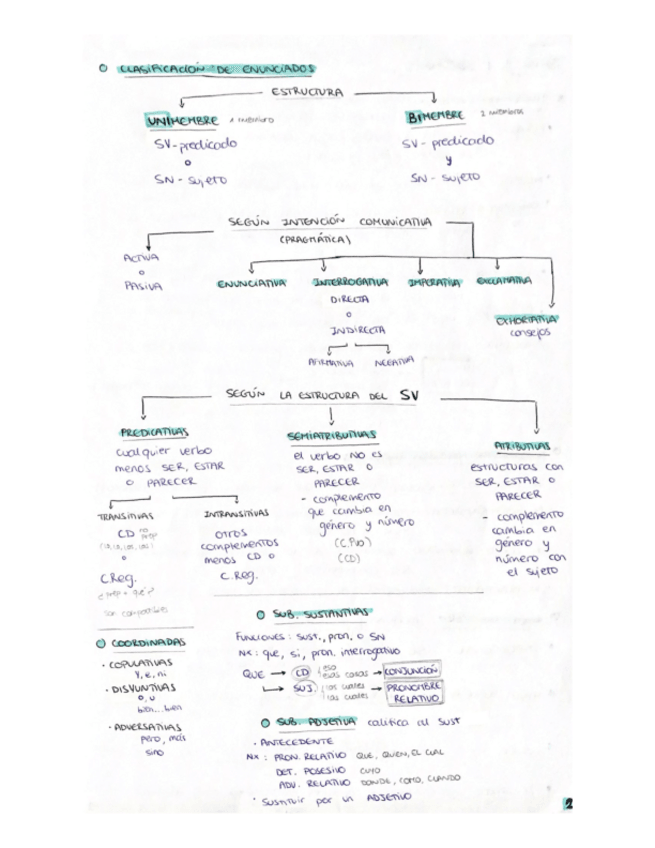 CLASIFICACIÓN DE ENUNCIADOS
ESTRUCTURA
UNIMEMBRE 1 miembro
BIMEMBRE 2 miembros
SV-predicado
o
SN - sujeto
SV- predicado
y
SN - sujeto
SEGÚN INTENCIÓN COMUNICATIVA
(PRAGMÁTICA)
ACTIVA
o
PASIVA
ENUNCIATIVA
INTERROGATIVA
IMPERATIVA
EXCLAMATIVA
DIRECTA
o
INDIRECTA
EXHORTATIVA
consejos
AFIRMATIVA
NEGATIVA
SEGÚN LA ESTRUCTURA DEL SV
PREDICATIVAS
cualquier verbo
menos SER, ESTAR
o PARECER
SEMIATRIBUTIVAS
el verbo NO es
SER, ESTAR O
PARECER
- complemento
que cambia en
género y número
(C.Pvo)
(CD)
ATRIBUTIVAS
estructuras con
SER, ESTAR O
PARECER
- complemento
cambia en
género y
número con
el sujeto
TRANSITIVAS
CD no prep
o
C.Reg.
son compatibles
INTRANSITIVAS
OTROS
complementos
menos CD o
C.Reg.
COORDINADAS
· COPULATIVAS
y, e, ni
· DISYUNTIVAS
o, u
bien...bien
· ADVERSATIVAS
pero, más
sino
SUB. SUSTANTIVAS
FUNCIONES: SUST., pron. o SN
NX: que, si, pron. interrogativo
QUE → CD eso esas cosas → CONJUNCIÓN
SUJ los cuales las cuales → PRONOMBRE RELATIVO
SUB. ADJETIVA califica al SUST
· ANTECEDENTE
NX: PRON. RELATIVO QUE, QUIEN, EL CUAL
DET. POSESIVO CUYO
ADV. RELATIVO DONDE, COMO, CUANDO
· SUSTITUIR por un ADJETIVO
2